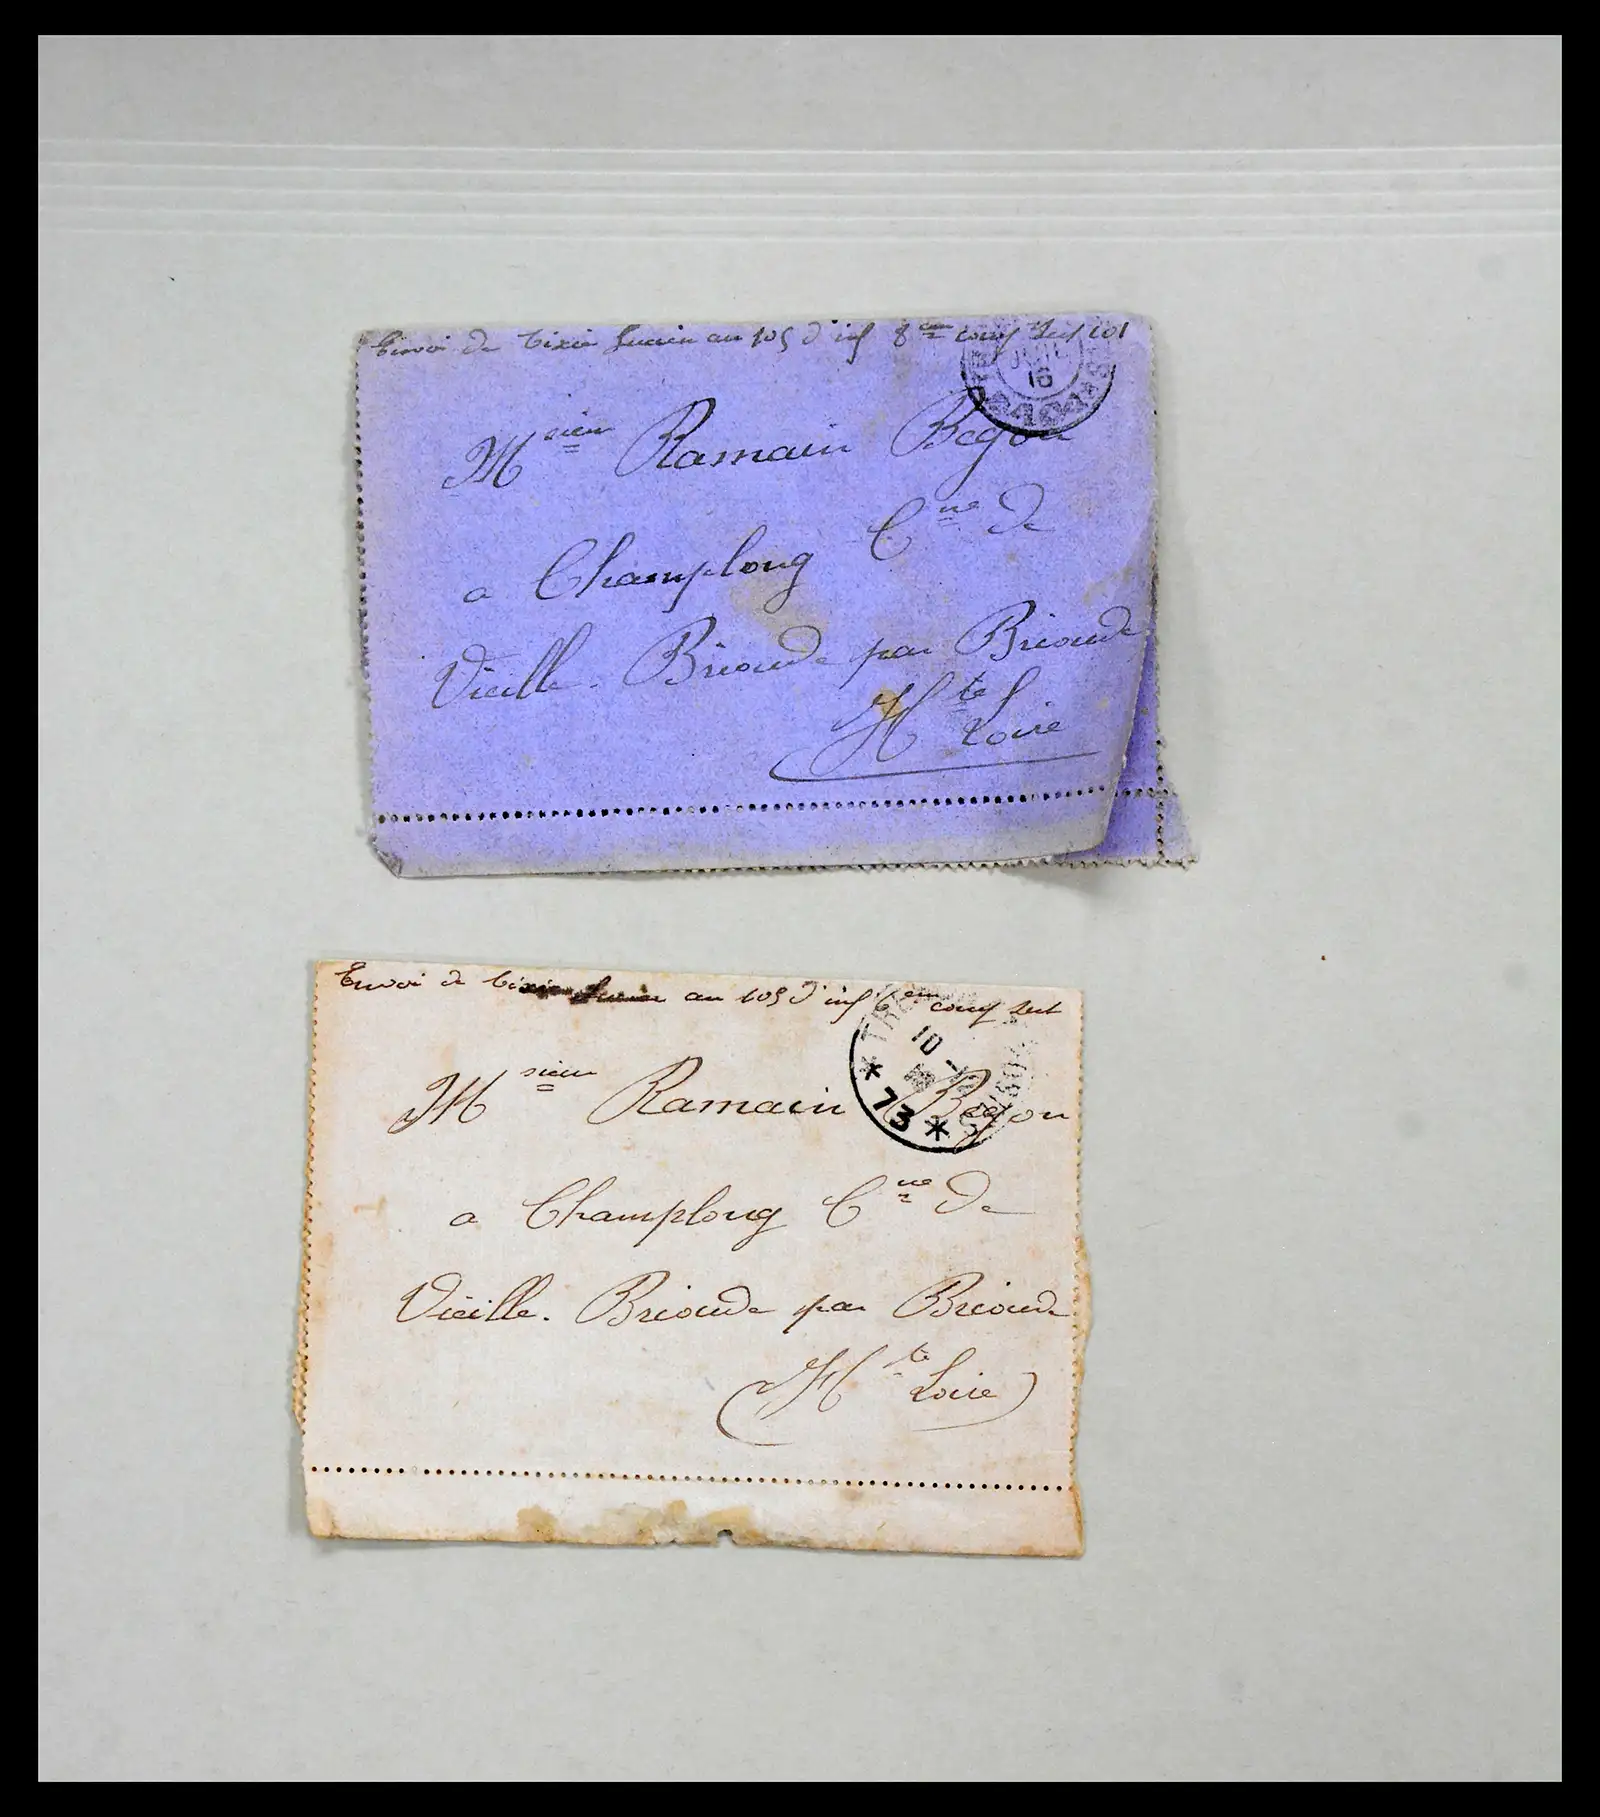 Envoi de Tixie Lucien au 105 d'inf 8em comp Sect 101
16
Msieur Ramain Begon
a Champlong Cne de
Vieille-Brioude par Brioude
Hte Loire
Envoi de Tixie Lucien au 105 d'inf 6em comp Sect
10
* 73 *
Msieur Ramain Begon
a Champlong Cne de
Vieille-Brioude par Brioude
(Hte Loire)